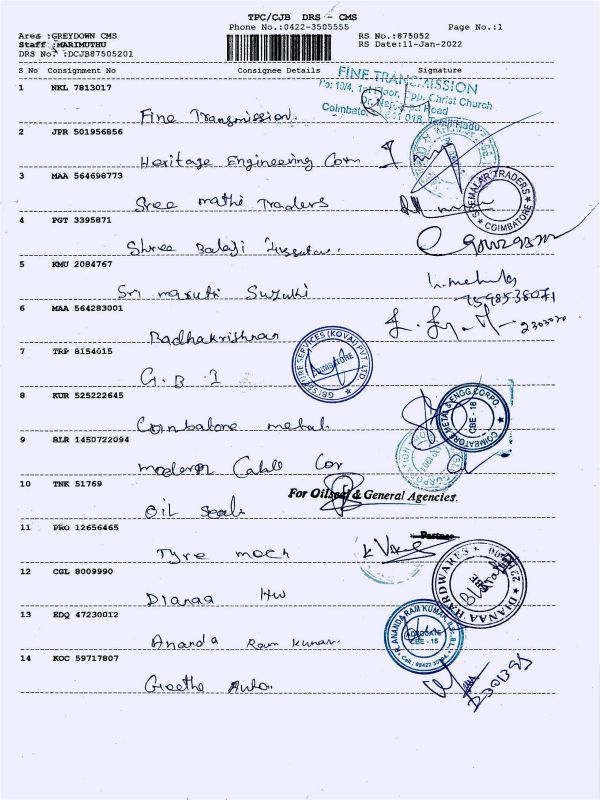 TPC/CJB DRS - CMS
Phone No.:0422-3505555 Page No.:1
Area :GREYDOWN CMS RS No.:875052
Staff :MARIMUTHU RS Date:11-Jan-2022
DRS No. :DCJB87505201
S No Consignment No Consignee Details Signature
1 NKL 7813017
FINE TRANSMISSION
Church
Road
Coimbatore 018, Tamil Nadu
Fine Transmission.
2 JPR 501956856
Heritage Engineering Corn
3 MAA 564698773
Sree mathi Traders
SREEMALAR TRADERS
COIMBATORE
4 PGT 3395871
Shree Balaji
5 KMU 2084767
Sri maruti Suzuki
7598538071
6 MAA 564283001
Radhakrishnan
7 TRP 8154015
G.B I
FIRE SERVICES (KOVAI) PVT. LTD.
COIMBATORE
8 KUR 525222645
Coimbatore metal
COIMBATORE METAL & ENGG.CORPO.
CBE - 18
9 BLR 1450722094
modern Cable Cor
10 TNK 51769
For Oilseal & General Agencies.
Oil Seals
Partner
11 PRO 12656465
Tyre mach
12 CGL 8009990
Dianaa HW
DIANAA HARDWARES
13 EDQ 47230012
Ananda Ram Kumar.
R. ANANDA RAM KUMAR, B.Sc.,B.L.
ADVOCATE
CBE - 18
14 KOC 59717807
Geetha Auto.